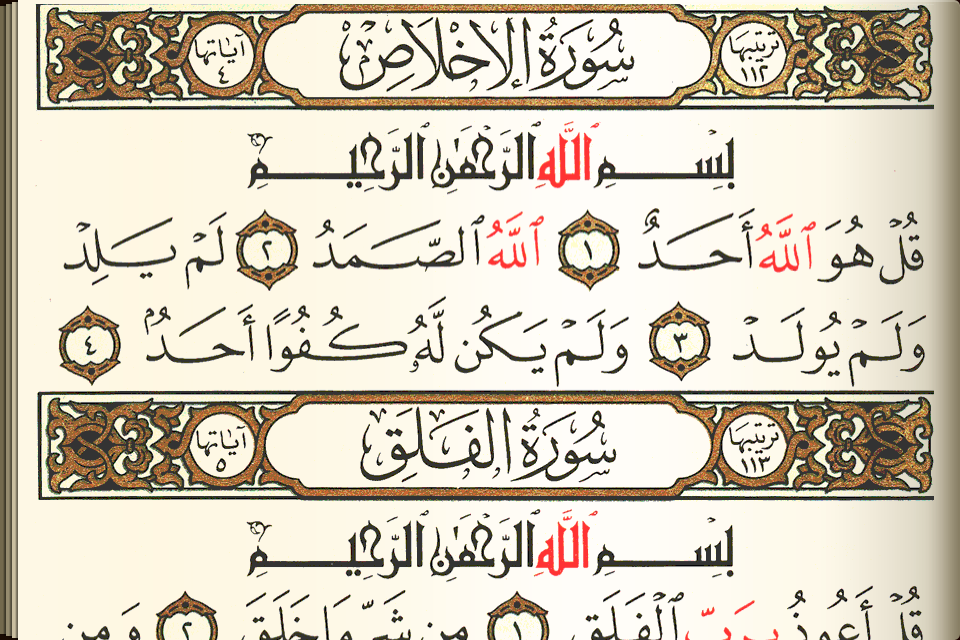 ترتيبها ١١٢ سُورَةُ الإِخْلَاصِ آياتها ٤
بِسْمِ ٱللَّهِ ٱلرَّحْمَٰنِ ٱلرَّحِيمِ
قُلْ هُوَ ٱللَّهُ أَحَدٌ ١ ٱللَّهُ ٱلصَّمَدُ ٢ لَمْ يَلِدْ
وَلَمْ يُولَدْ ٣ وَلَمْ يَكُن لَّهُۥ كُفُوًا أَحَدٌۢ ٤
ترتيبها ١١٣ سُورَةُ الفَلَقِ آياتها ٥
بِسْمِ ٱللَّهِ ٱلرَّحْمَٰنِ ٱلرَّحِيمِ
قُلْ أَعُوذُ بِرَبِّ ٱلْفَلَقِ ١ مِن شَرِّ مَا خَلَقَ ٢ وَمِن